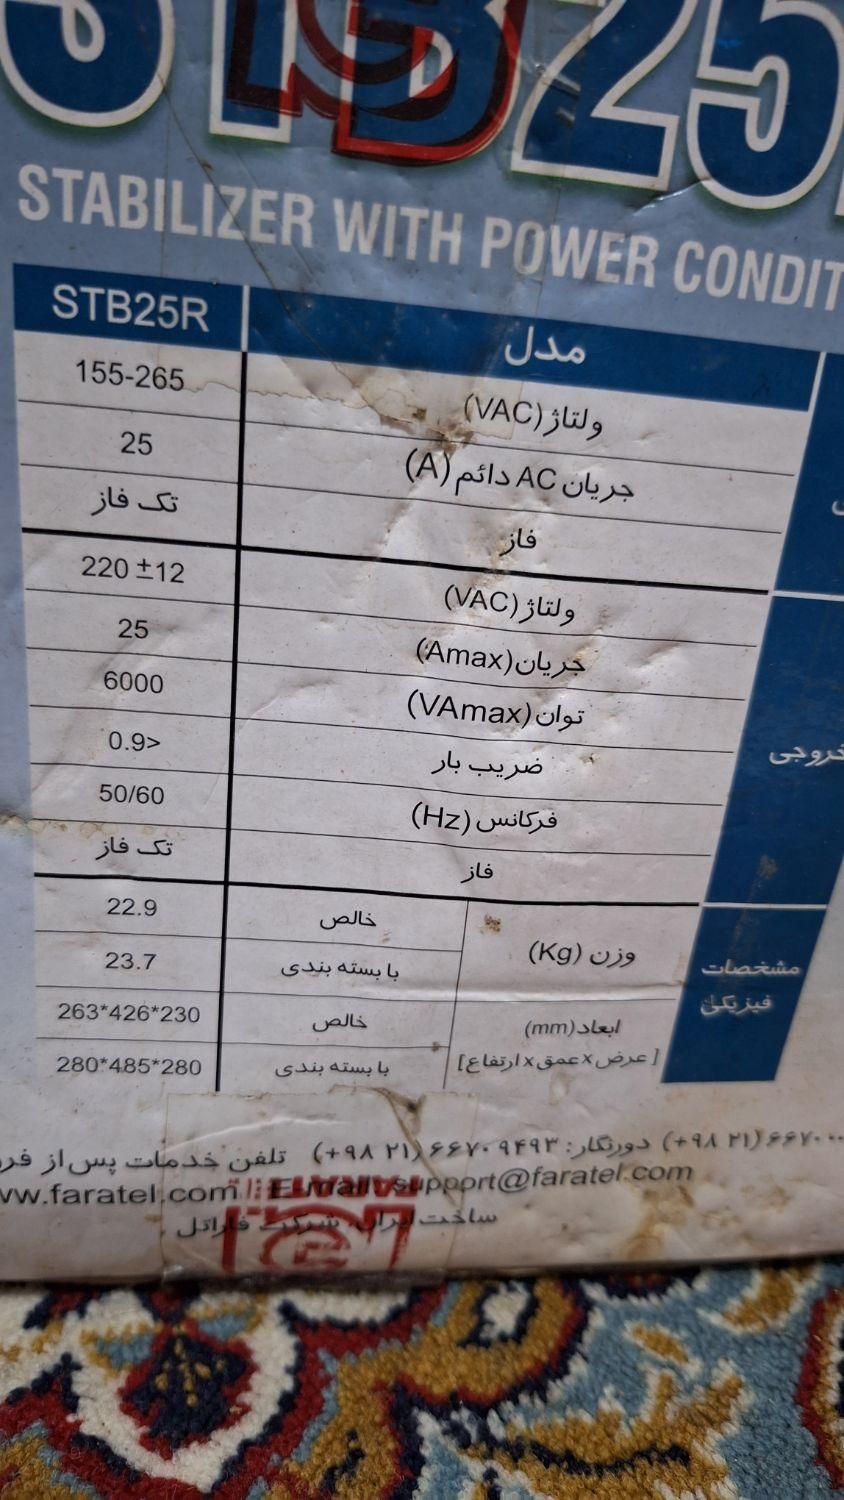 STB25
STABILIZER WITH POWER CONDIT
مدل STB25R
ولتاژ (VAC) 155-265
جریان AC دائم (A) 25
فاز تک فاز
خروجی
ولتاژ (VAC) 220 ±12
جریان (Amax) 25
توان (VAmax) 6000
ضریب بار 0.9<
فرکانس (Hz) 50/60
فاز تک فاز
مشخصات فیزیکی
وزن (Kg) خالص 22.9
با بسته بندی 23.7
ابعاد (mm) خالص 263*426*230
[عرض x عمق x ارتفاع] با بسته بندی 280*485*280
(+۹۸ ۲۱) ۶۶۷۰۰۰ دورنگار: ۶۶۷۰۹۴۹۳ (+۹۸ ۲۱) تلفن خدمات پس از فرو
ww.faratel.com E-mail: support@faratel.com
ساخت ایران، شرکت فاراتل